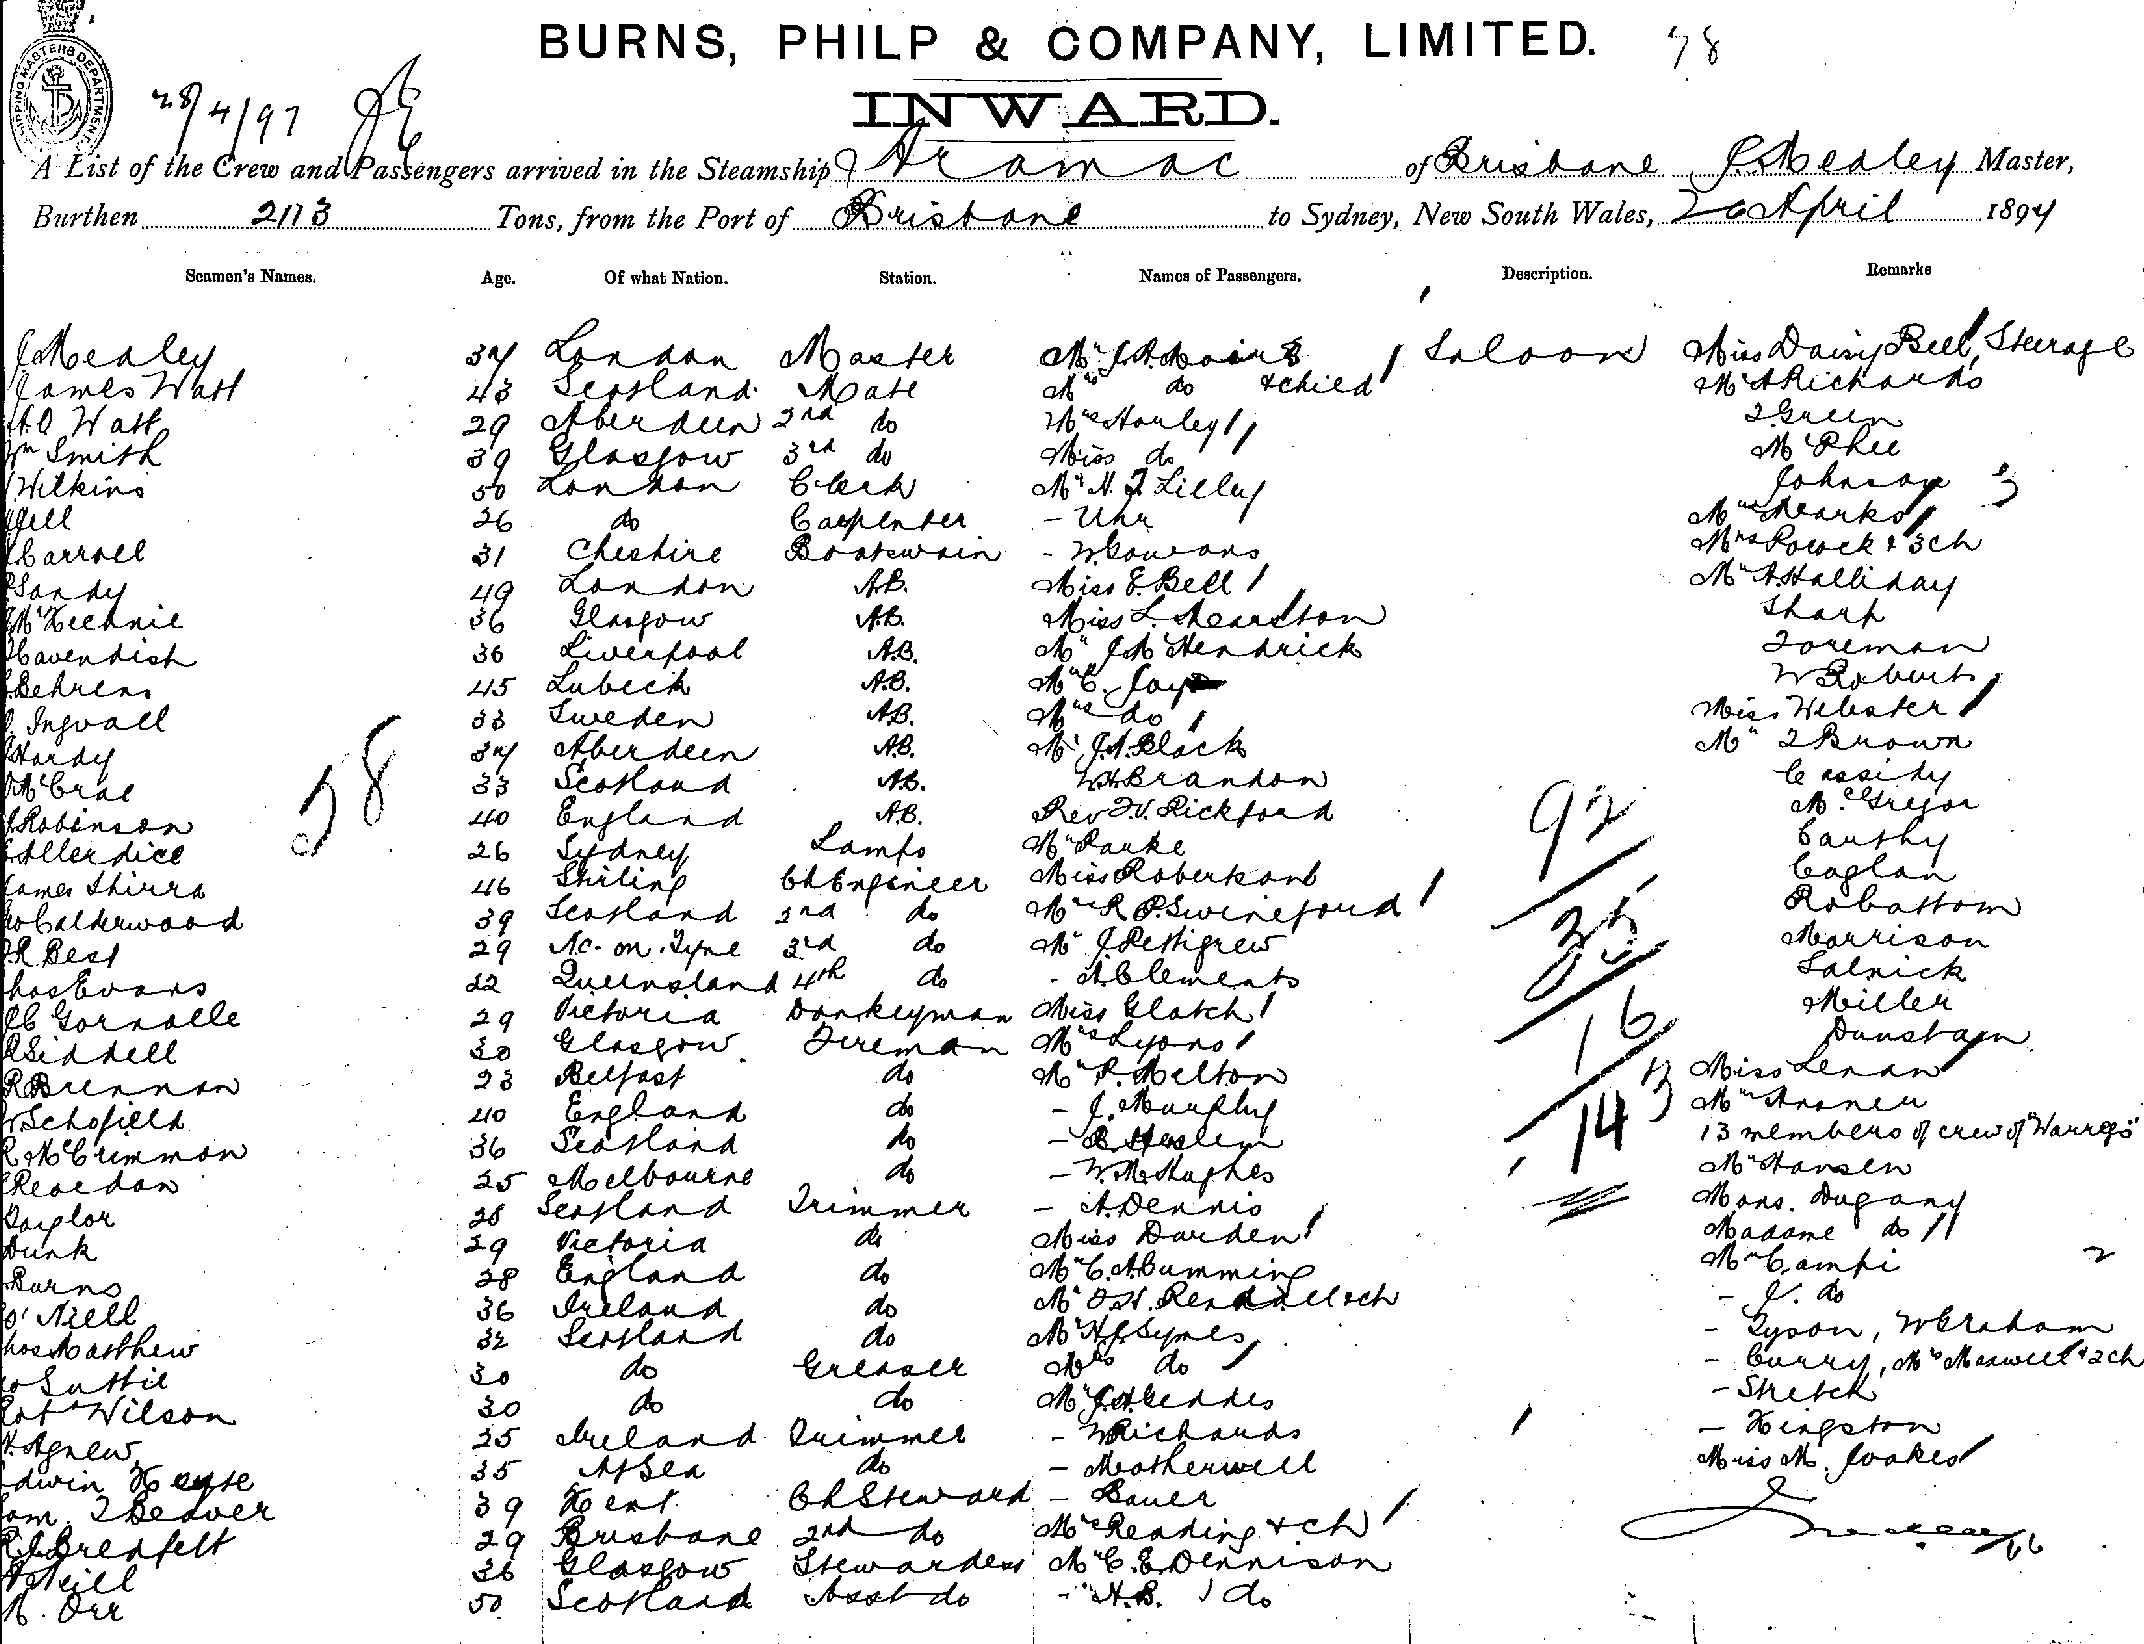 BURNS, PHILP & COMPANY, LIMITED. 78
SHIPPING MASTERS DEPARTMENT
28/4/97 JE
INWARD.
A List of the Crew and Passengers arrived in the Steamship Aramac of Brisbane J. Mealey Master,
Burthen 2113 Tons, from the Port of Brisbane to Sydney, New South Wales, 26 April 1897
Seamen's Names. Age. Of what Nation. Station. Names of Passengers. Description. Remarks
J Mealey 37 London Master Mr J.A. Saloon Miss Daisy Bell, Steerage
James Watt 43 Scotland Mate Mrs do & child Mr A Richards
A.O Watt 29 Aberdeen 2nd do Mrs Horley T Green
Wm Smith 39 Glasgow 3rd do Miss do McPhee
Wilkins 50 London Clerk Mr H. J. Lilley Johnson 3
Gill 26 do Carpenter - Uhr Mrs Mearks
Carroll 31 Cheshire Boatswain - W. Cowans Mrs Pocock & 3ch
Sandy 49 London A.B. Miss E. Bell Mr A Halliday
McKechnie 36 Glasgow A.B. Miss L. Shearston Sharp
Cavendish 36 Liverpool A.B. Mr J McKendrick Foreman
Behrens 45 Lubeck A.B. Mr C. Jay W Robert
Ingvall 33 Sweden A.B. Mrs do Miss Webster
Hardy 37 Aberdeen A.B. Mr J.A. Black Mr T Brown
McCrae 33 Scotland A.B. W.H. Brandon Cassidy
Robinson 40 England A.B. Rev F.V. Pickford McGregor
Allerdice 26 Sydney Lamps Mr Parke Carthy
James Shirra 46 Stirling Ch Engineer Miss Robertson Coglan
Calderwood 39 Scotland 2nd do Mrs R P. Swineford Robottom
R Best 29 Nc. on Tyne 3rd do Mr J. Pettigrew Morrison
Chas Evans 22 Queensland 4th do - A. Clements Salnick
Gornalle 29 Victoria Donkeyman Miss Glatch Miller
Siddell 30 Glasgow Fireman Mrs Lyons Dunstain
R Brennan 23 Belfast do Mr P. Melton Miss Lenan
Schofield 40 England do - J. Murphy Mr
R McCrimmon 36 Scotland do - Heslem 13 members of crew of Warrego
Reardon 25 Melbourne do - W. McHughes Mr Hansen
Taylor 28 Scotland Trimmer - A. Dennis Mons. Dugany
Dunk 29 Victoria do Miss Darden Madame do
Burns 28 England do Mr C. A. Cumming Mr Campi 2
O'Neill 36 Ireland do Mr O.H. Rendall & ch - J. do
Thos Matthew 32 Scotland do Mr H J Symes - Tyson, W Graham
Suttie 30 do Greaser Mrs do - Curry, Mrs Maxwell & 2ch
Robt Wilson 30 do do Mr J.A. Geddes - Stretch
Agnew 25 Ireland Trimmer - W Richards - Kingston
Edwin 35 At Sea do - Motherwell Miss M. Jookes
Sam. T Beaver 39 Kent Ch Steward - Bauer
Brenfelt 29 Brisbane 2nd do Mrs Reading & ch
Neill 36 Glasgow Stewardess Mr C. E. Dennison
M. Orr 50 Scotland Asst do - H.B. do
58
92
35
16
14